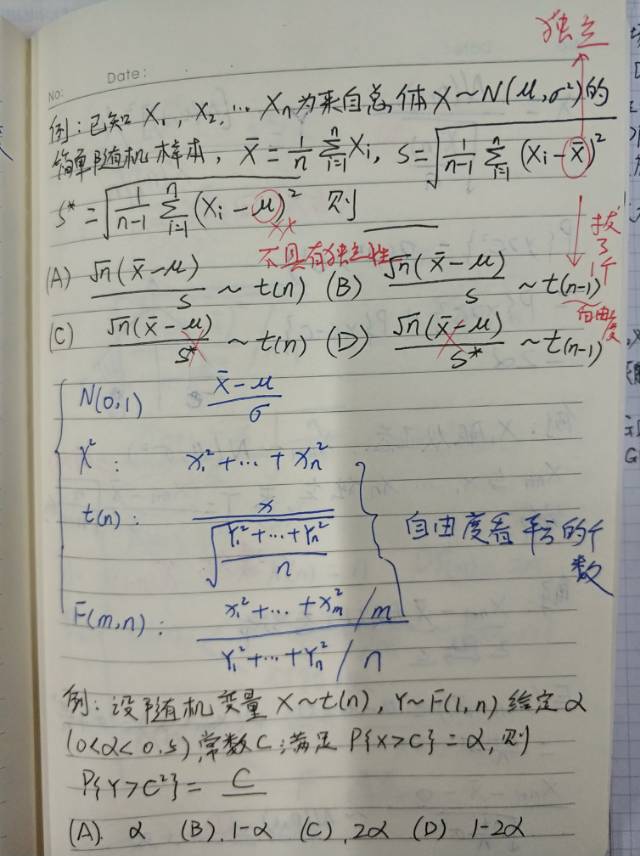 独立
No:
Date:
例:已知 X₁, X₂, … Xn 为来自总体 X~N(μ,σ²)的
简单随机样本, X̄ = 1/n Σ(i=1,n) Xi, S = √(1/(n-1) Σ(i=1,n) (Xi - X̄)²)
S* = √(1/(n-1) Σ(i=1,n) (Xi - μ)²) 则 ____
不具有独立性
拔了1个
(A) √n(X̄-μ)/S ~ t(n) (B) √n(X̄-μ)/S ~ t(n-1)
自由度
(C) √n(X̄-μ)/S* ~ t(n) (D) √n(X̄-μ)/S* ~ t(n-1)
N(0,1) (X̄-μ)/σ
χ²: X₁²+…+Xn²
t(n): X/√((Y₁²+…+Yn²)/n)
自由度看平方的个
数
F(m,n): (X₁²+…+Xm²/m)/(Y₁²+…+Yn²/n)
例:设随机变量 X~t(n), Y~F(1,n) 给定 α
(0<α<0.5),常数C满足 P{X>C}=α,则
P{Y>C²}= C
(A). α (B). 1-α (C). 2α (D) 1-2α